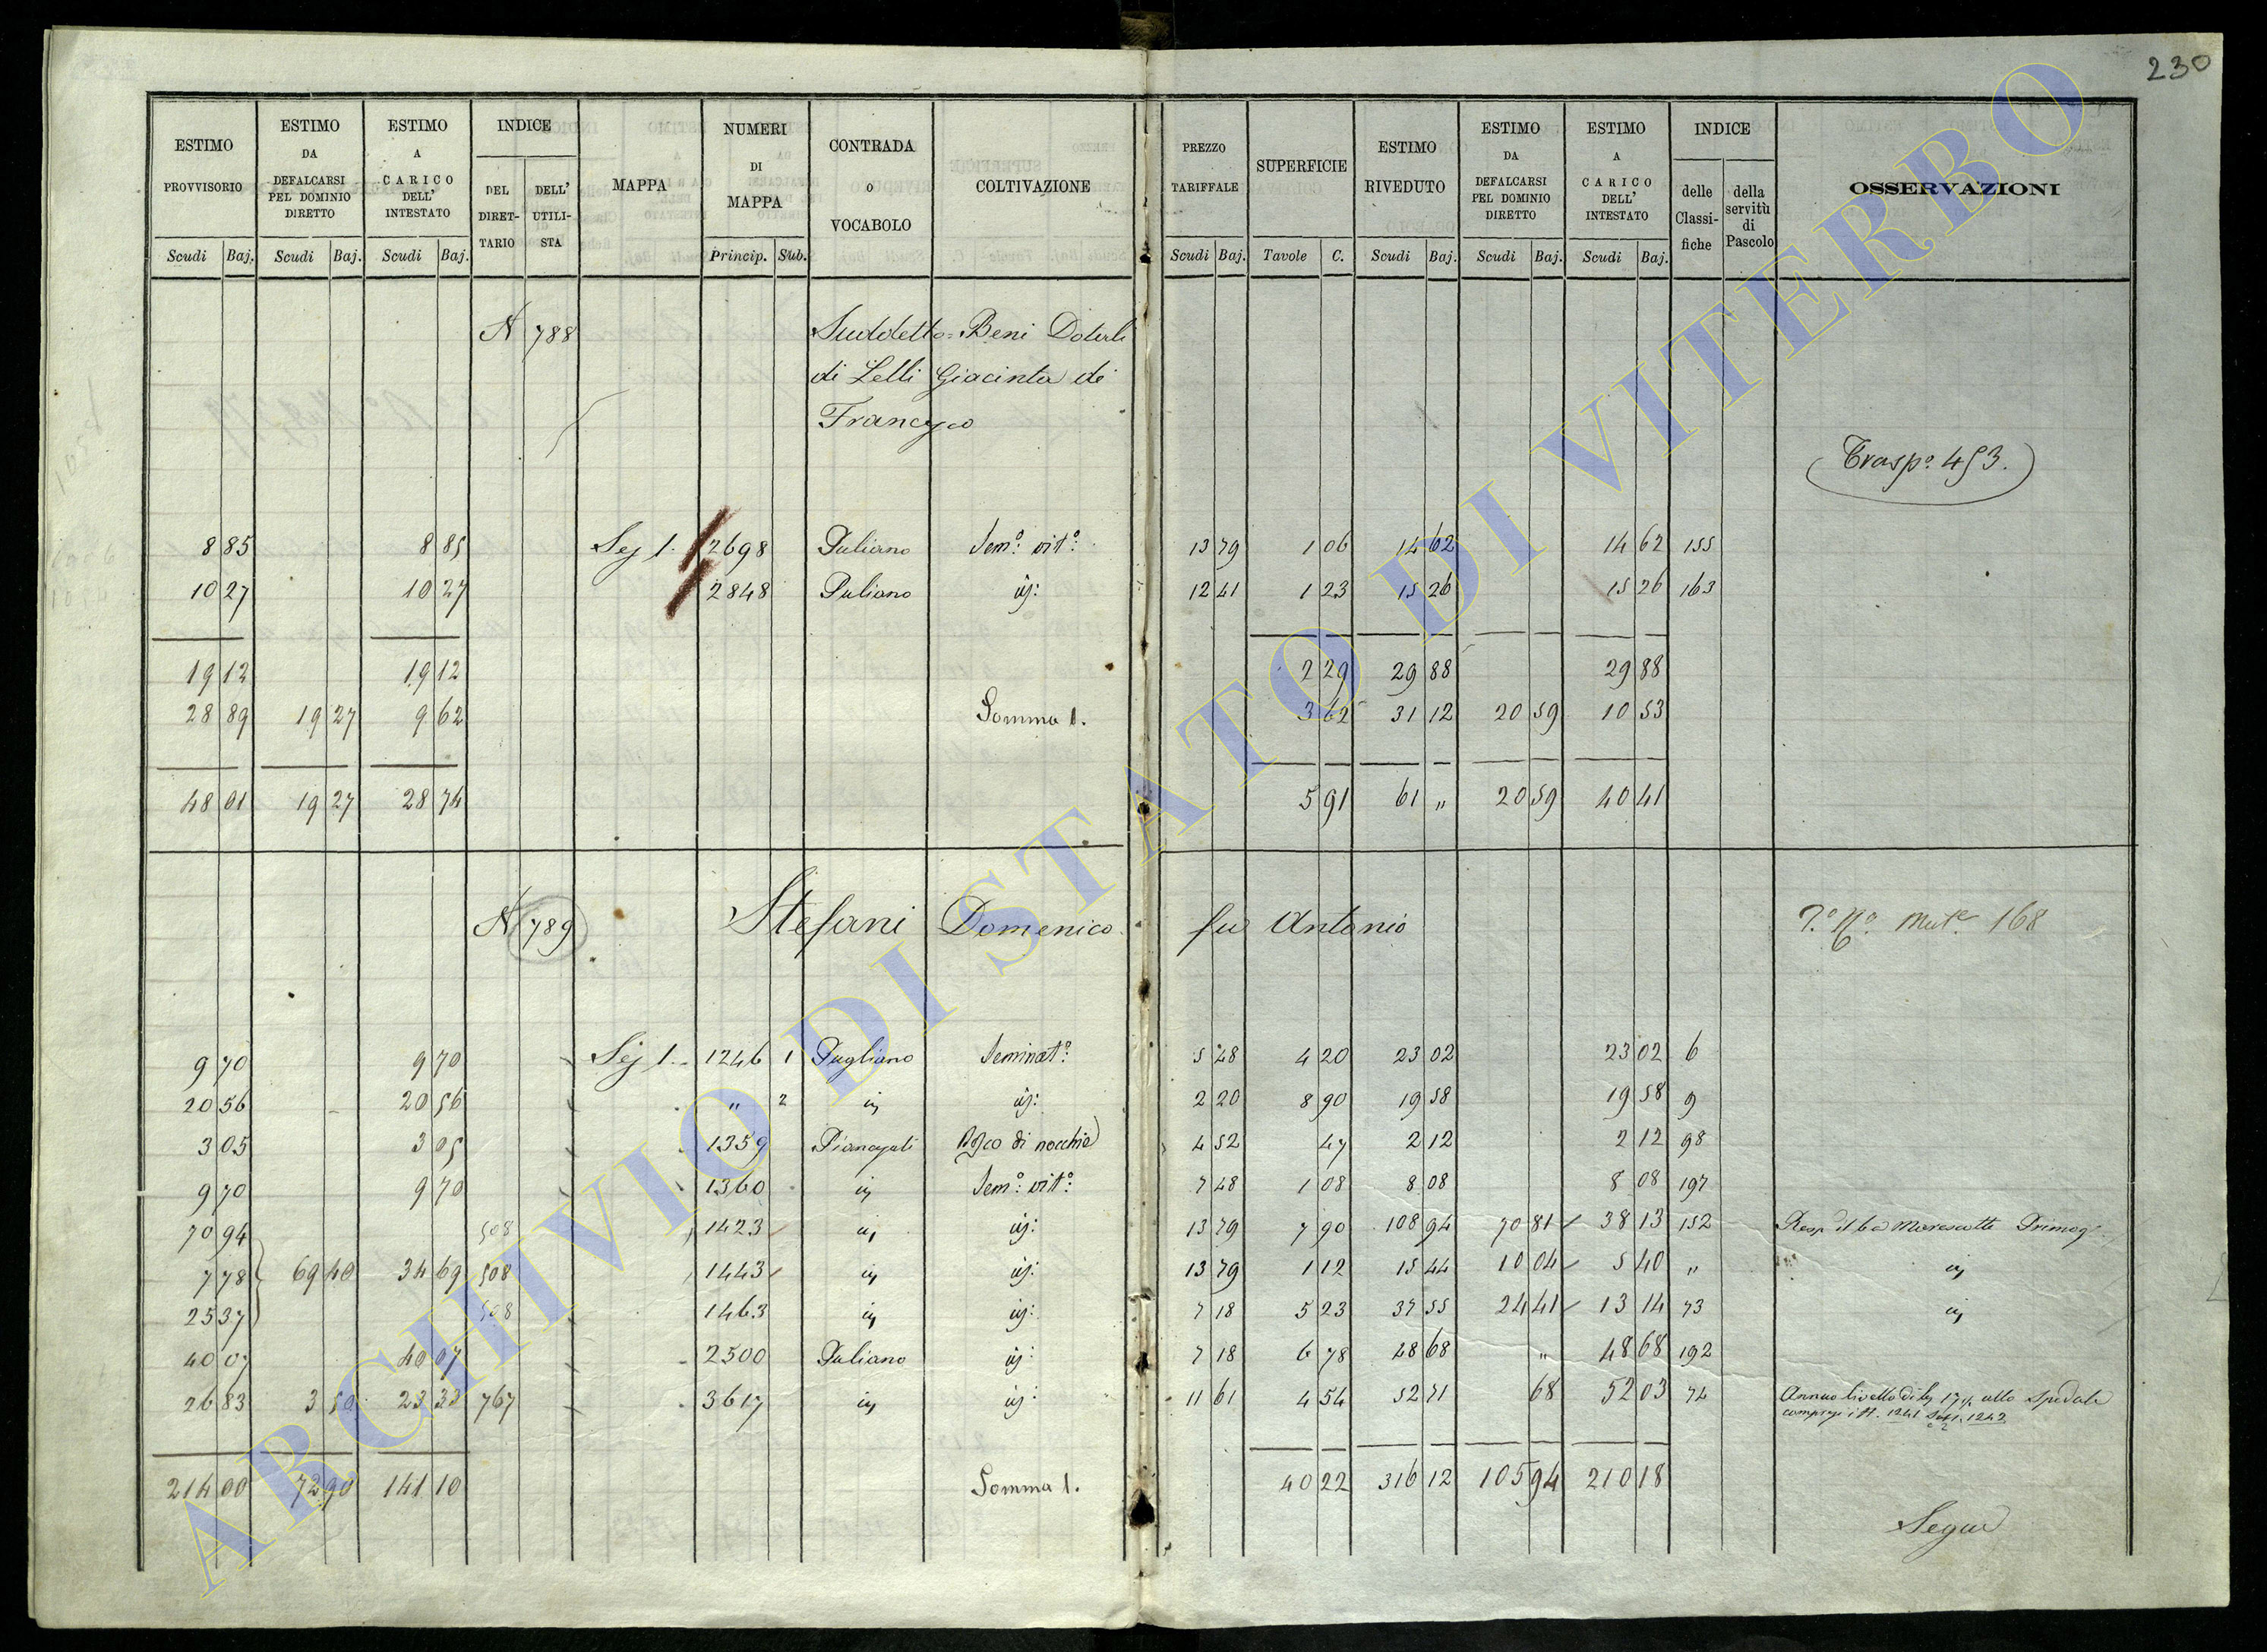 230
ESTIMO PROVVISORIO | ESTIMO DA DEFALCARSI PEL DOMINIO DIRETTO | ESTIMO A CARICO DELL' INTESTATO | INDICE | MAPPA | NUMERI DI MAPPA | CONTRADA O VOCABOLO | COLTIVAZIONE | PREZZO TARIFFALE | SUPERFICIE | ESTIMO RIVEDUTO | ESTIMO DA DEFALCARSI PEL DOMINIO DIRETTO | ESTIMO A CARICO DELL' INTESTATO | INDICE | OSSERVAZIONI
DEL DIRET-TARIO | DELL' UTILI-STA | delle Classi-fiche | della servitù di Pascolo
Scudi Baj. | Scudi Baj. | Scudi Baj. | Princip. Sub. | Scudi Baj. | Tavole C. | Scudi Baj. | Scudi Baj. | Scudi Baj.
N 788 Suddetto = Beni Dotali
di Lelli Giacinta di
Francesco
Trasp.o 453.
8 85 | 8 85 | Sez 1. | 2698 | Puliano | Sem.o vit.o | 13 79 | 1 06 | 14 62 | 14 62 | 155
10 27 | 10 27 | 2848 | Puliano | id: | 12 41 | 1 23 | 15 26 | 15 26 | 163
19 12 | 19 12 | 2 29 | 29 88 | 29 88
28 89 | 19 27 | 9 62 | Somma 1. | 3 62 | 31 12 | 20 59 | 10 53
48 01 | 19 27 | 28 74 | 5 91 | 61 " | 20 59 | 40 41
N 789 Stefani Domenico fu Antonio
Mut.e 168
9 70 | 9 70 | Sez 1. | 1246 1 | Pugliano | Seminat.o | 5 48 | 4 20 | 23 02 | 23 02 | 6
20 56 | 20 56 | " 2 | id | id: | 2 20 | 8 90 | 19 58 | 19 58 | 9
3 05 | 3 05 | 1359 | Bosco di nocchie | 4 52 | 47 | 2 12 | 2 12 | 98
9 70 | 9 70 | 1360 | id | Sem.o vit.o | 7 48 | 1 08 | 8 08 | 8 08 | 197
70 94 | 508 | 1423 | id | id: | 13 79 | 7 90 | 108 94 | 70 81 | 38 13 | 152 | Marescotti Primog.
7 78 | 69 40 | 34 69 | 508 | 1443 | id | id: | 13 79 | 1 12 | 15 44 | 10 04 | 5 40 | " | id
25 37 | 508 | 1463 | id | id: | 7 18 | 5 23 | 37 55 | 24 41 | 13 14 | 73 | id
40 07 | 40 07 | 2500 | Puliano | id: | 7 18 | 6 78 | 48 68 | " | 48 68 | 192
26 83 | 3 50 | 23 33 | 767 | 3617 | id | id: | 11 61 | 4 54 | 52 71 | 68 | 52 03 | 74 | Annuo livello di allo Spedale
compresi i N. 1241 1242
214 00 | 72 90 | 141 10 | Somma 1. | 40 22 | 316 12 | 105 94 | 210 18
Segue
ARCHIVIO DI STATO DI VITERBO